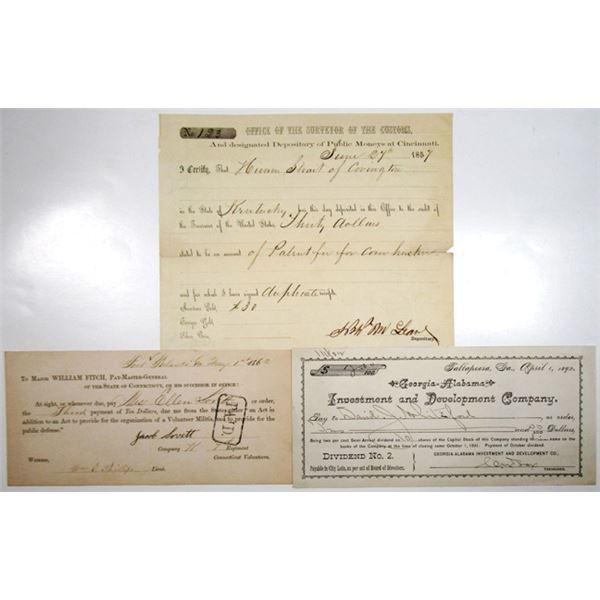 No 123 OFFICE OF THE SURVEYOR OF THE CUSTOMS,
And designated Depository of Public Moneys at Cincinnati.
June 27th 1857
I Certify, That Hiram of Covington
in the State of Kentucky, has this day deposited in this Office to the credit of the
Treasurer of the United States, Thirty dollars
stated to be on account of Patent fee for Corn husker
and for which I have signed duplicate receipts.
American Gold, $30
Foreign Gold,
Silver Coin,
Depositary
May 1st 1862
To MAJOR WILLIAM FITCH, PAY-MASTER-GENERAL
OF THE STATE OF CONNECTICUT, OR HIS SUCCESSOR IN OFFICE:
At sight, or whenever due, pay Mrs Ellen or order,
the Third payment of Ten Dollars, due me from the State under "an Act in
addition to an Act to provide for the organization of a Volunteer Militia, and to provide for the
public defense."
Jacob Lovett
Company H Regiment
Connecticut Volunteers.
WITNESS,
Lieut.
Tallapoosa, Ga., April 1, 1892.
$ 100
Georgia-Alabama
Investment and Development Company.
Pay to or order,
and 100 Dollars,
Being two per cent Semi Annual dividend on shares of the Capital Stock of this Company standing in name on the
books of the Company at the time of closing same October 1, 1891. Payment of October dividend.
DIVIDEND No. 2.
GEORGIA-ALABAMA INVESTMENT AND DEVELOPMENT CO.,
Payable in City Lots, as per act of Board of Directors.
TREASURER.